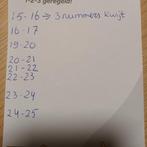 1-2-3 geregeld!
15-16 → 3 nummers kwijt
16-17
19-20
20-21
21-22
22-23
23-24
24-25